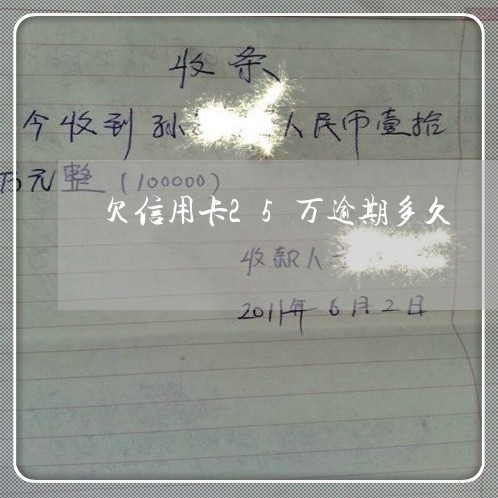 收条
今收到孙 人民币壹拾
万元整（100000）
欠信用卡25万逾期多久
收款人
2011年6月2日